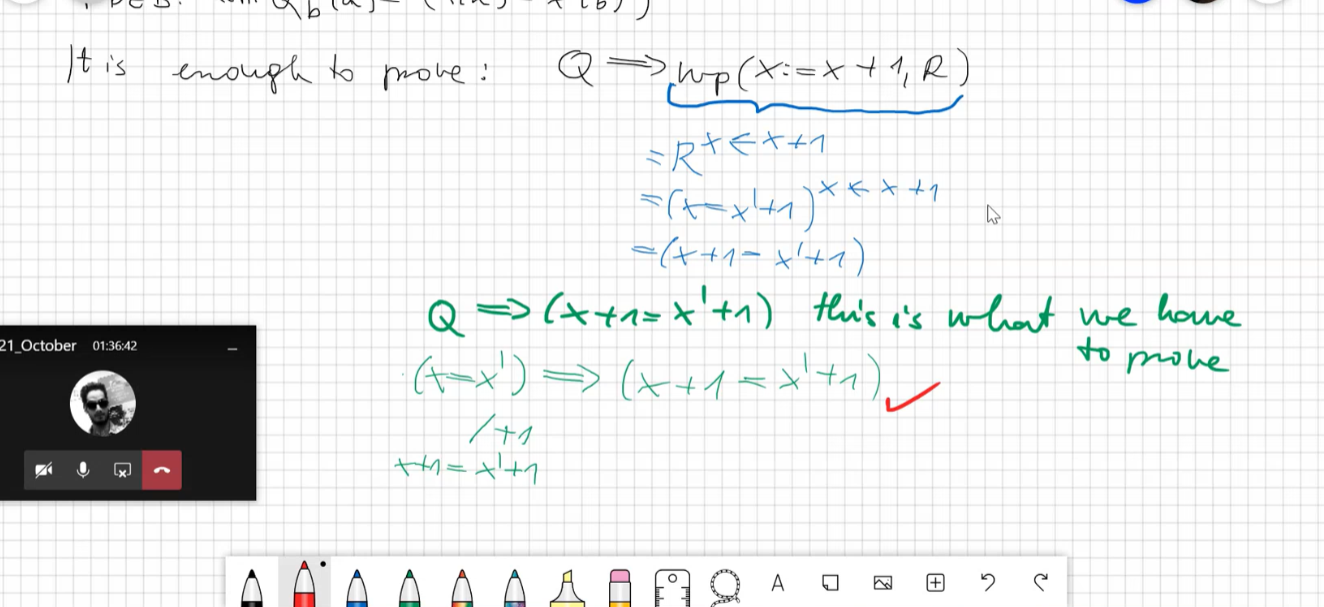 It is enough to prove: Q ⟹ wp(x:=x+1, R)
= R^x←x+1
= (x=x'+1)^x←x+1
= (x+1=x'+1)
Q ⟹ (x+1=x'+1) this is what we have
to prove
(x=x') ⟹ (x+1=x'+1)
/+1
x+1=x'+1
21_October 01:36:42
A